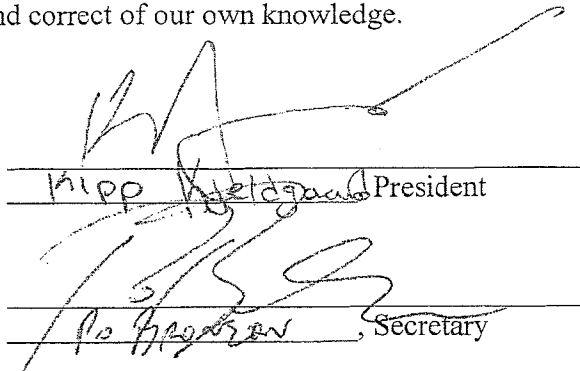 nd correct of our own knowledge.
Kipp Kjeldgaard, President
Po Bronson, Secretary